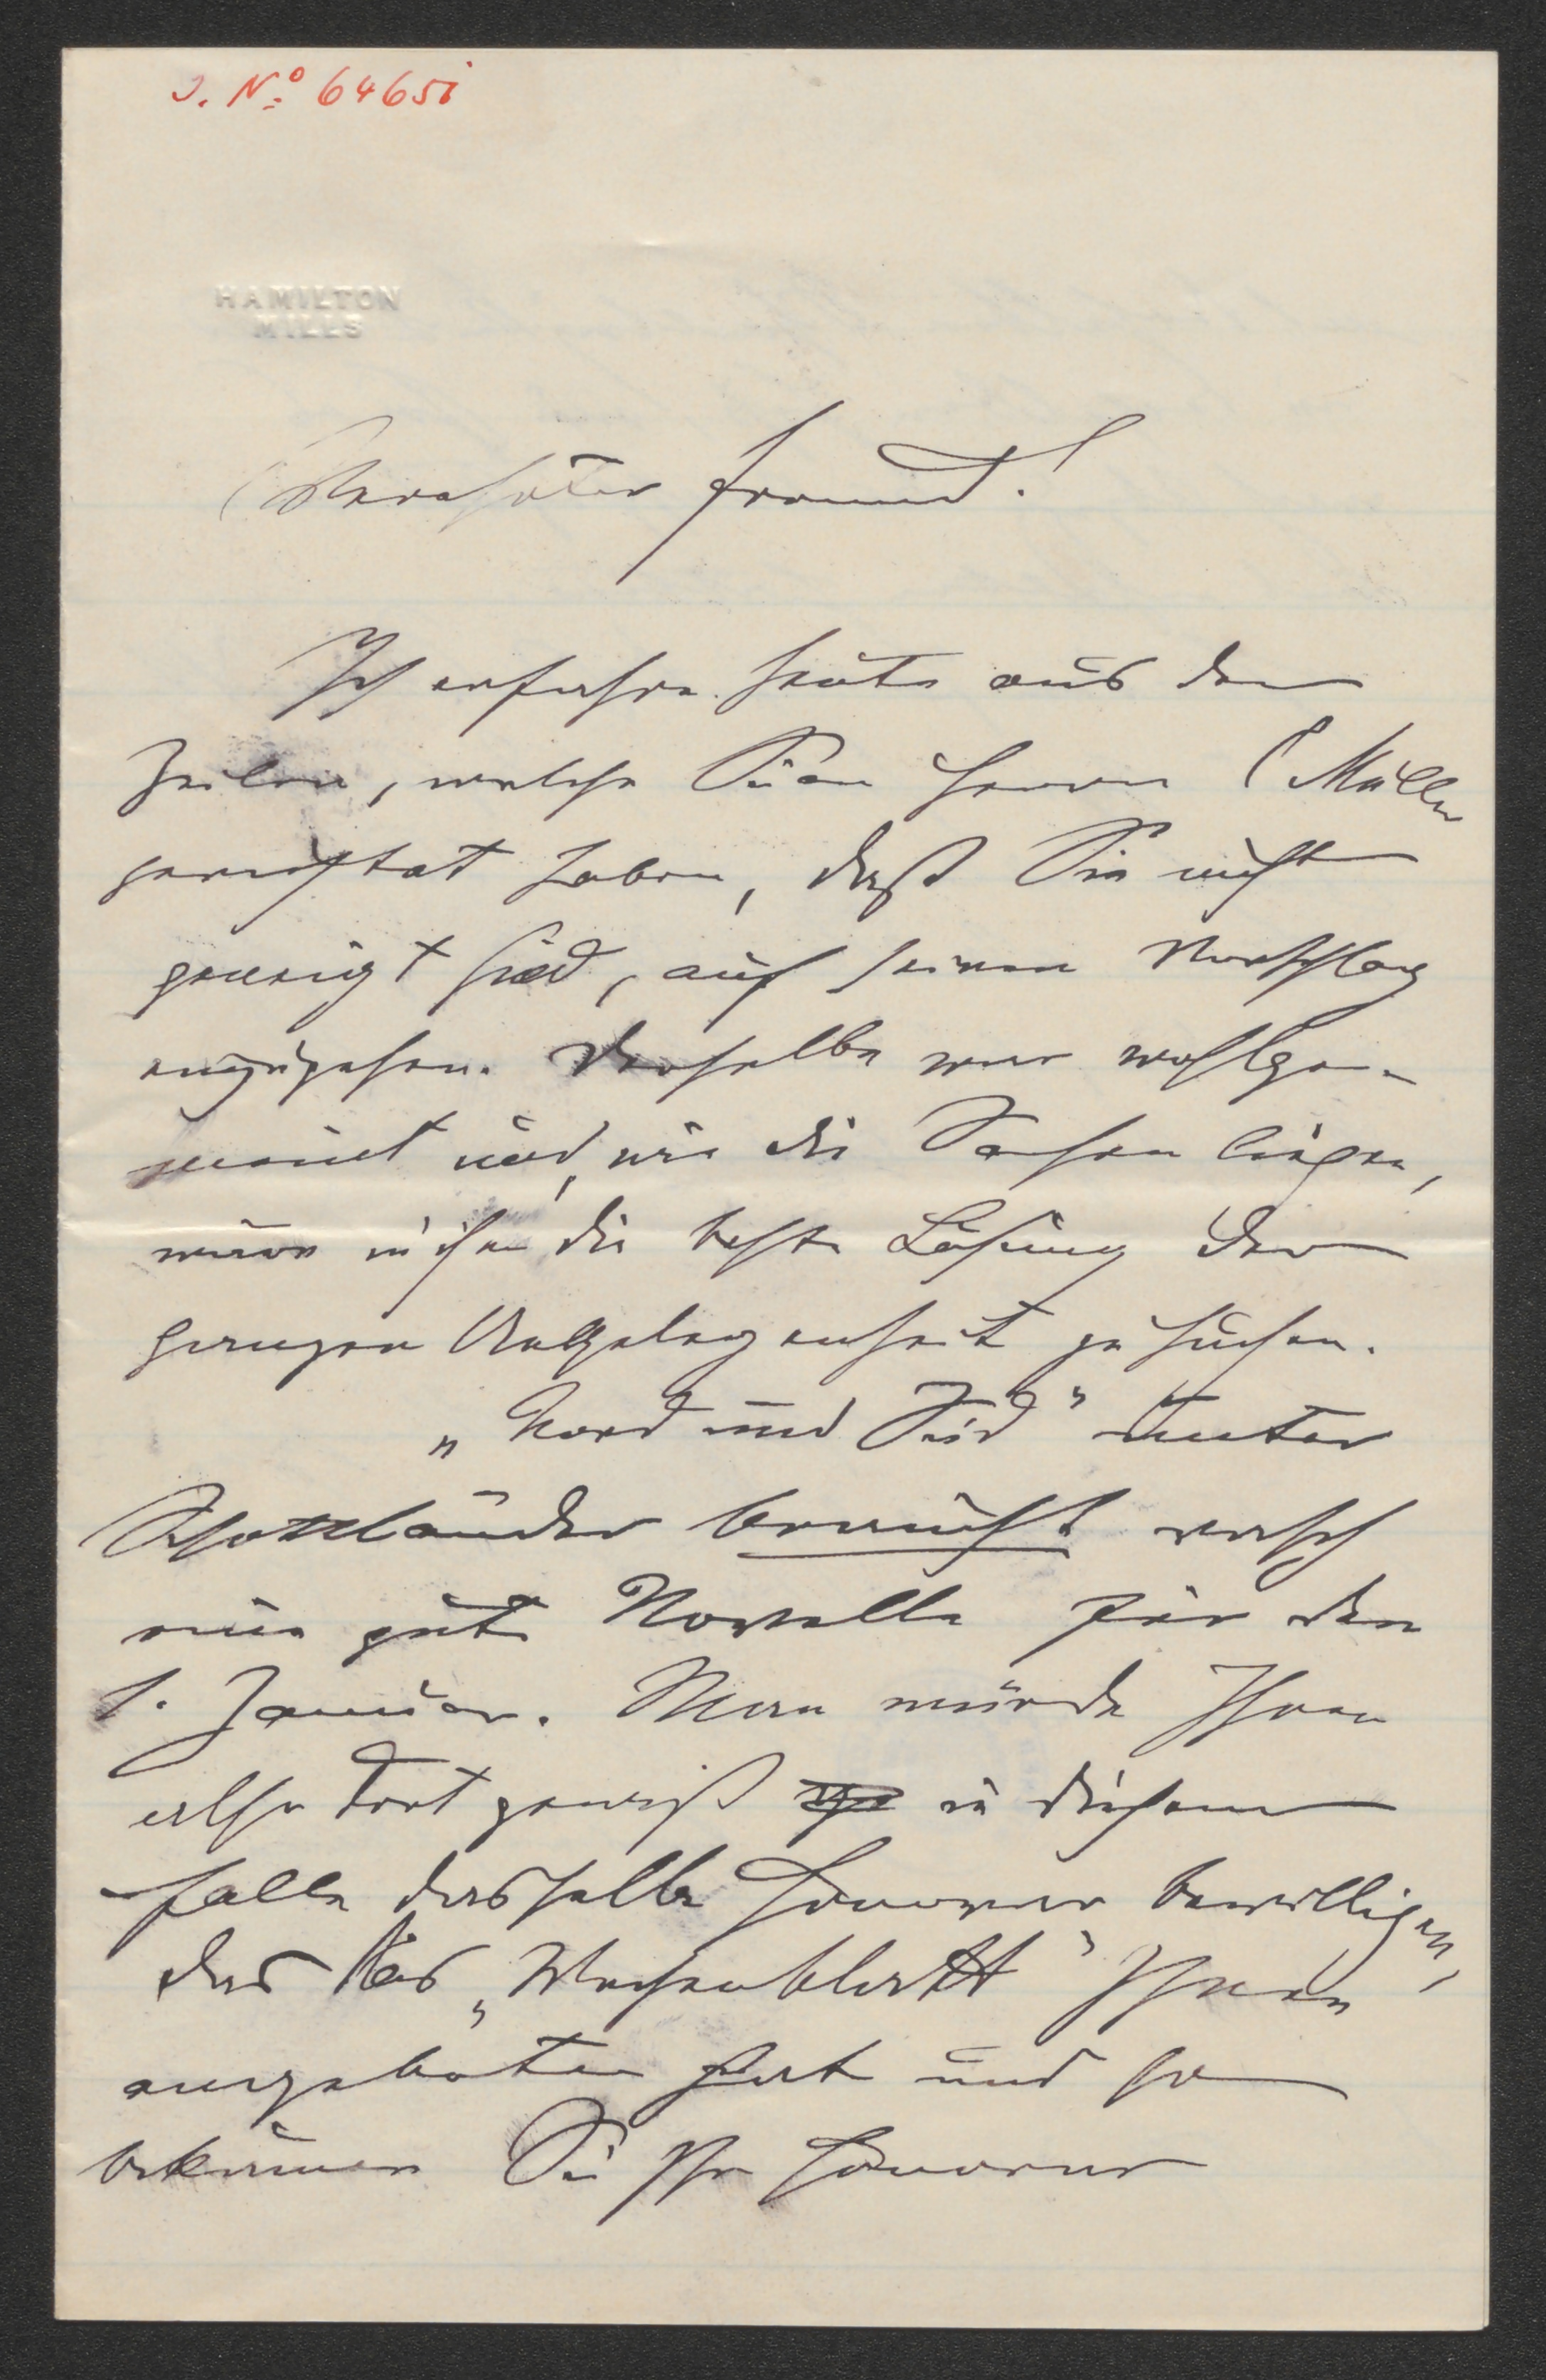 J. No. 64651
HAMILTON
MILLS
Verehrter Freund!
Ich erfahre heute aus den
Zeilen, welche Sie an Herrn Müller
gerichtet haben, daß Sie nicht
geneigt sind, auf seinen Vorschlag
einzugehen. Derselbe war wohlge-
meint und, wie die Sachen liegen,
wäre in ihm die beste Lösung der
ganzen Angelegenheit zu suchen.
„Nord und Süd" unter
Schottländer braucht rasch
eine gute Novelle für den
1. Januar. Man würde Ihnen
also dort gewiß in diesem
Falle dasselbe Honorar bewilligen,
das das „Wochenblatt" Ihnen
angeboten hat und so
bekämen Sie Ihr Honorar